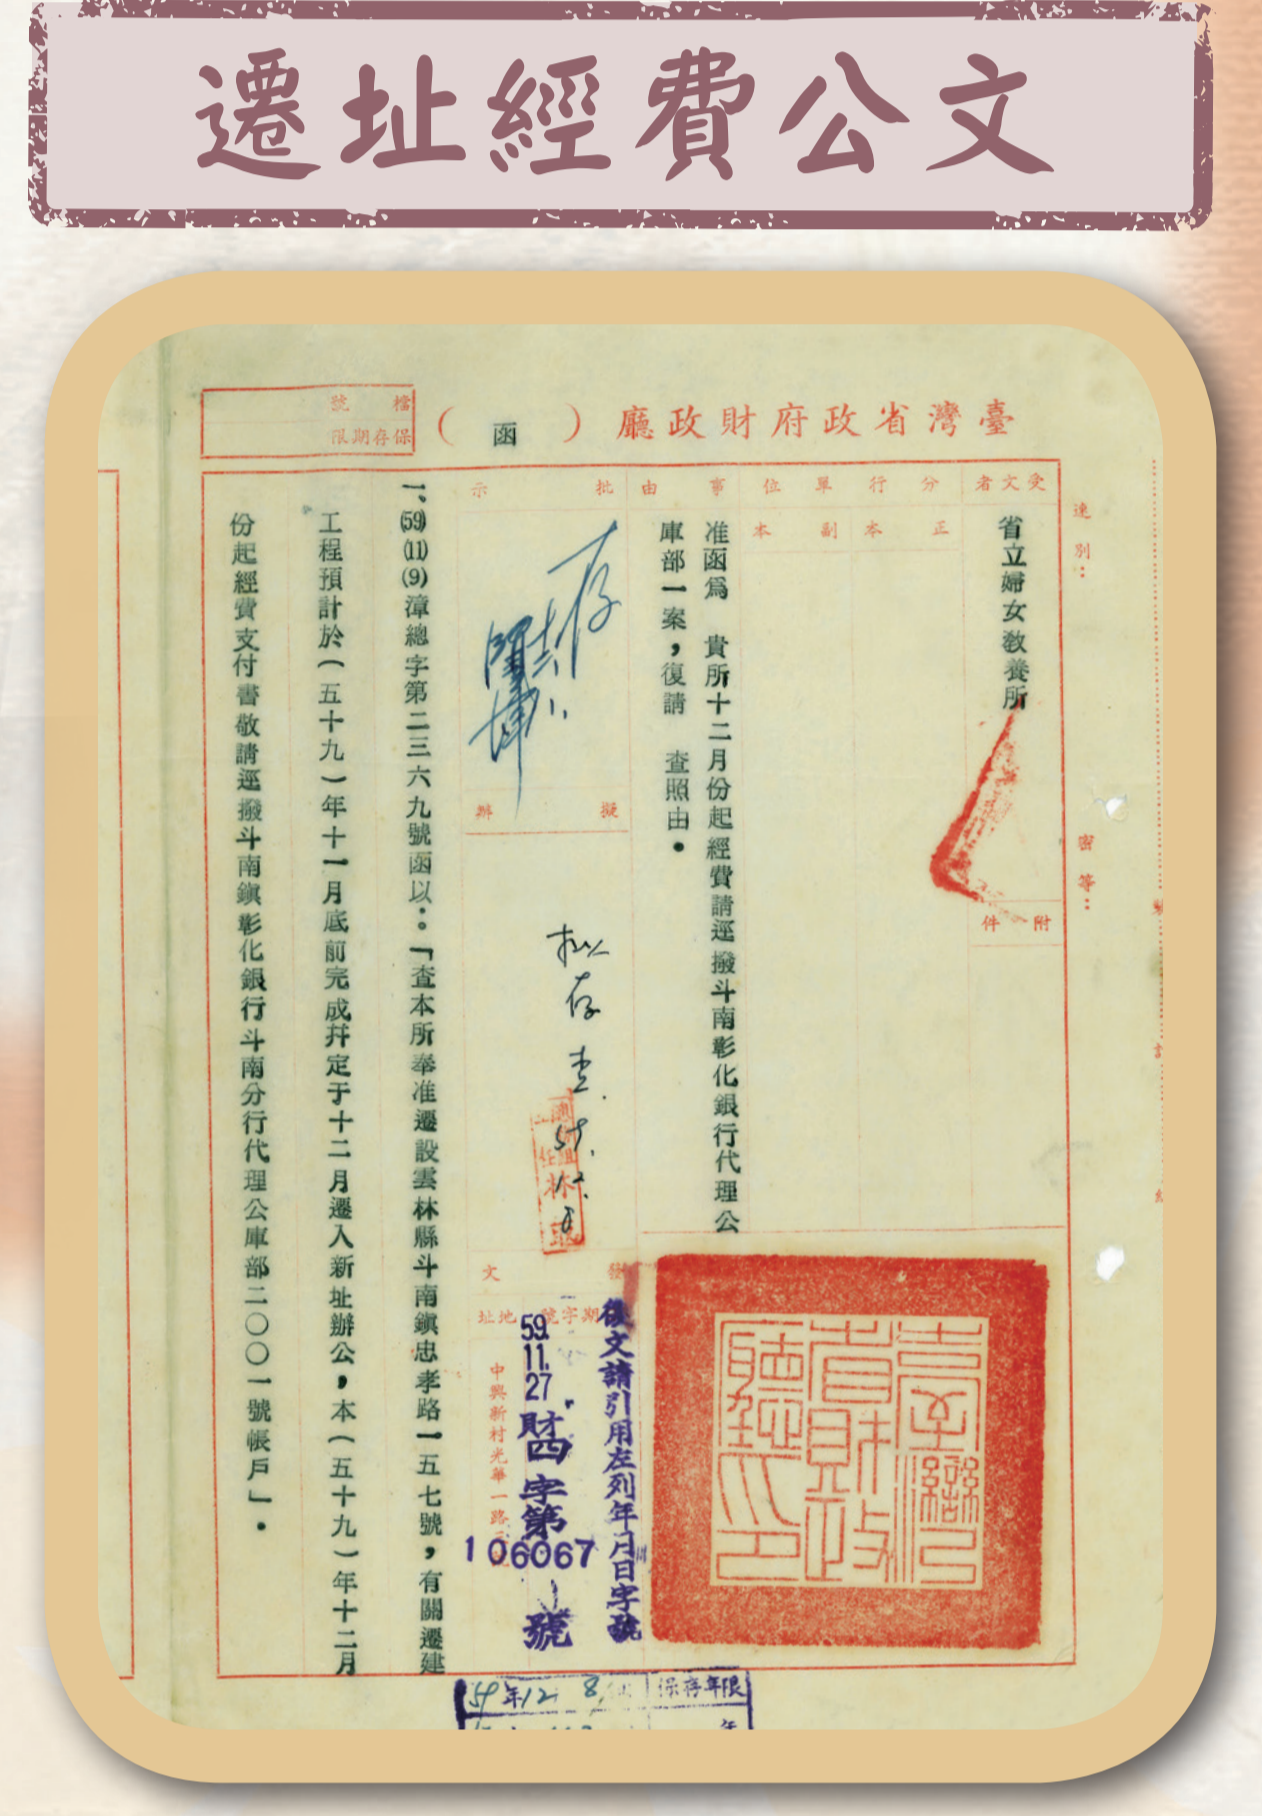 遷址經費公文
臺灣省政府財政廳（函）
檔號
保存期限
速別：
密等：
受文者
省立婦女教養所
附件
分行單位
正本
副本
事由
准函為　貴所十二月份起經費請逕撥斗南彰化銀行代理公
庫部一案，復請　查照由。
批示
存
擬辦
擬存查
59.12.
發文
字號
地址
後文請引用左列年月日字號
59.11.27.財四字第106067號
中興新村光華一路
一、(59)(11)(9)漳總字第二三六九號函以：。「查本所奉准遷設雲林縣斗南鎮忠孝路一五七號，有關遷建
工程預計於（五十九）年十一月底前完成幷定于十二月遷入新址辦公，本（五十九）年十二月
份起經費支付書敬請逕撥斗南鎮彰化銀行斗南分行代理公庫部二〇〇一號帳戶」。
臺灣省政府財政廳印
59年12 8
保存年限
年